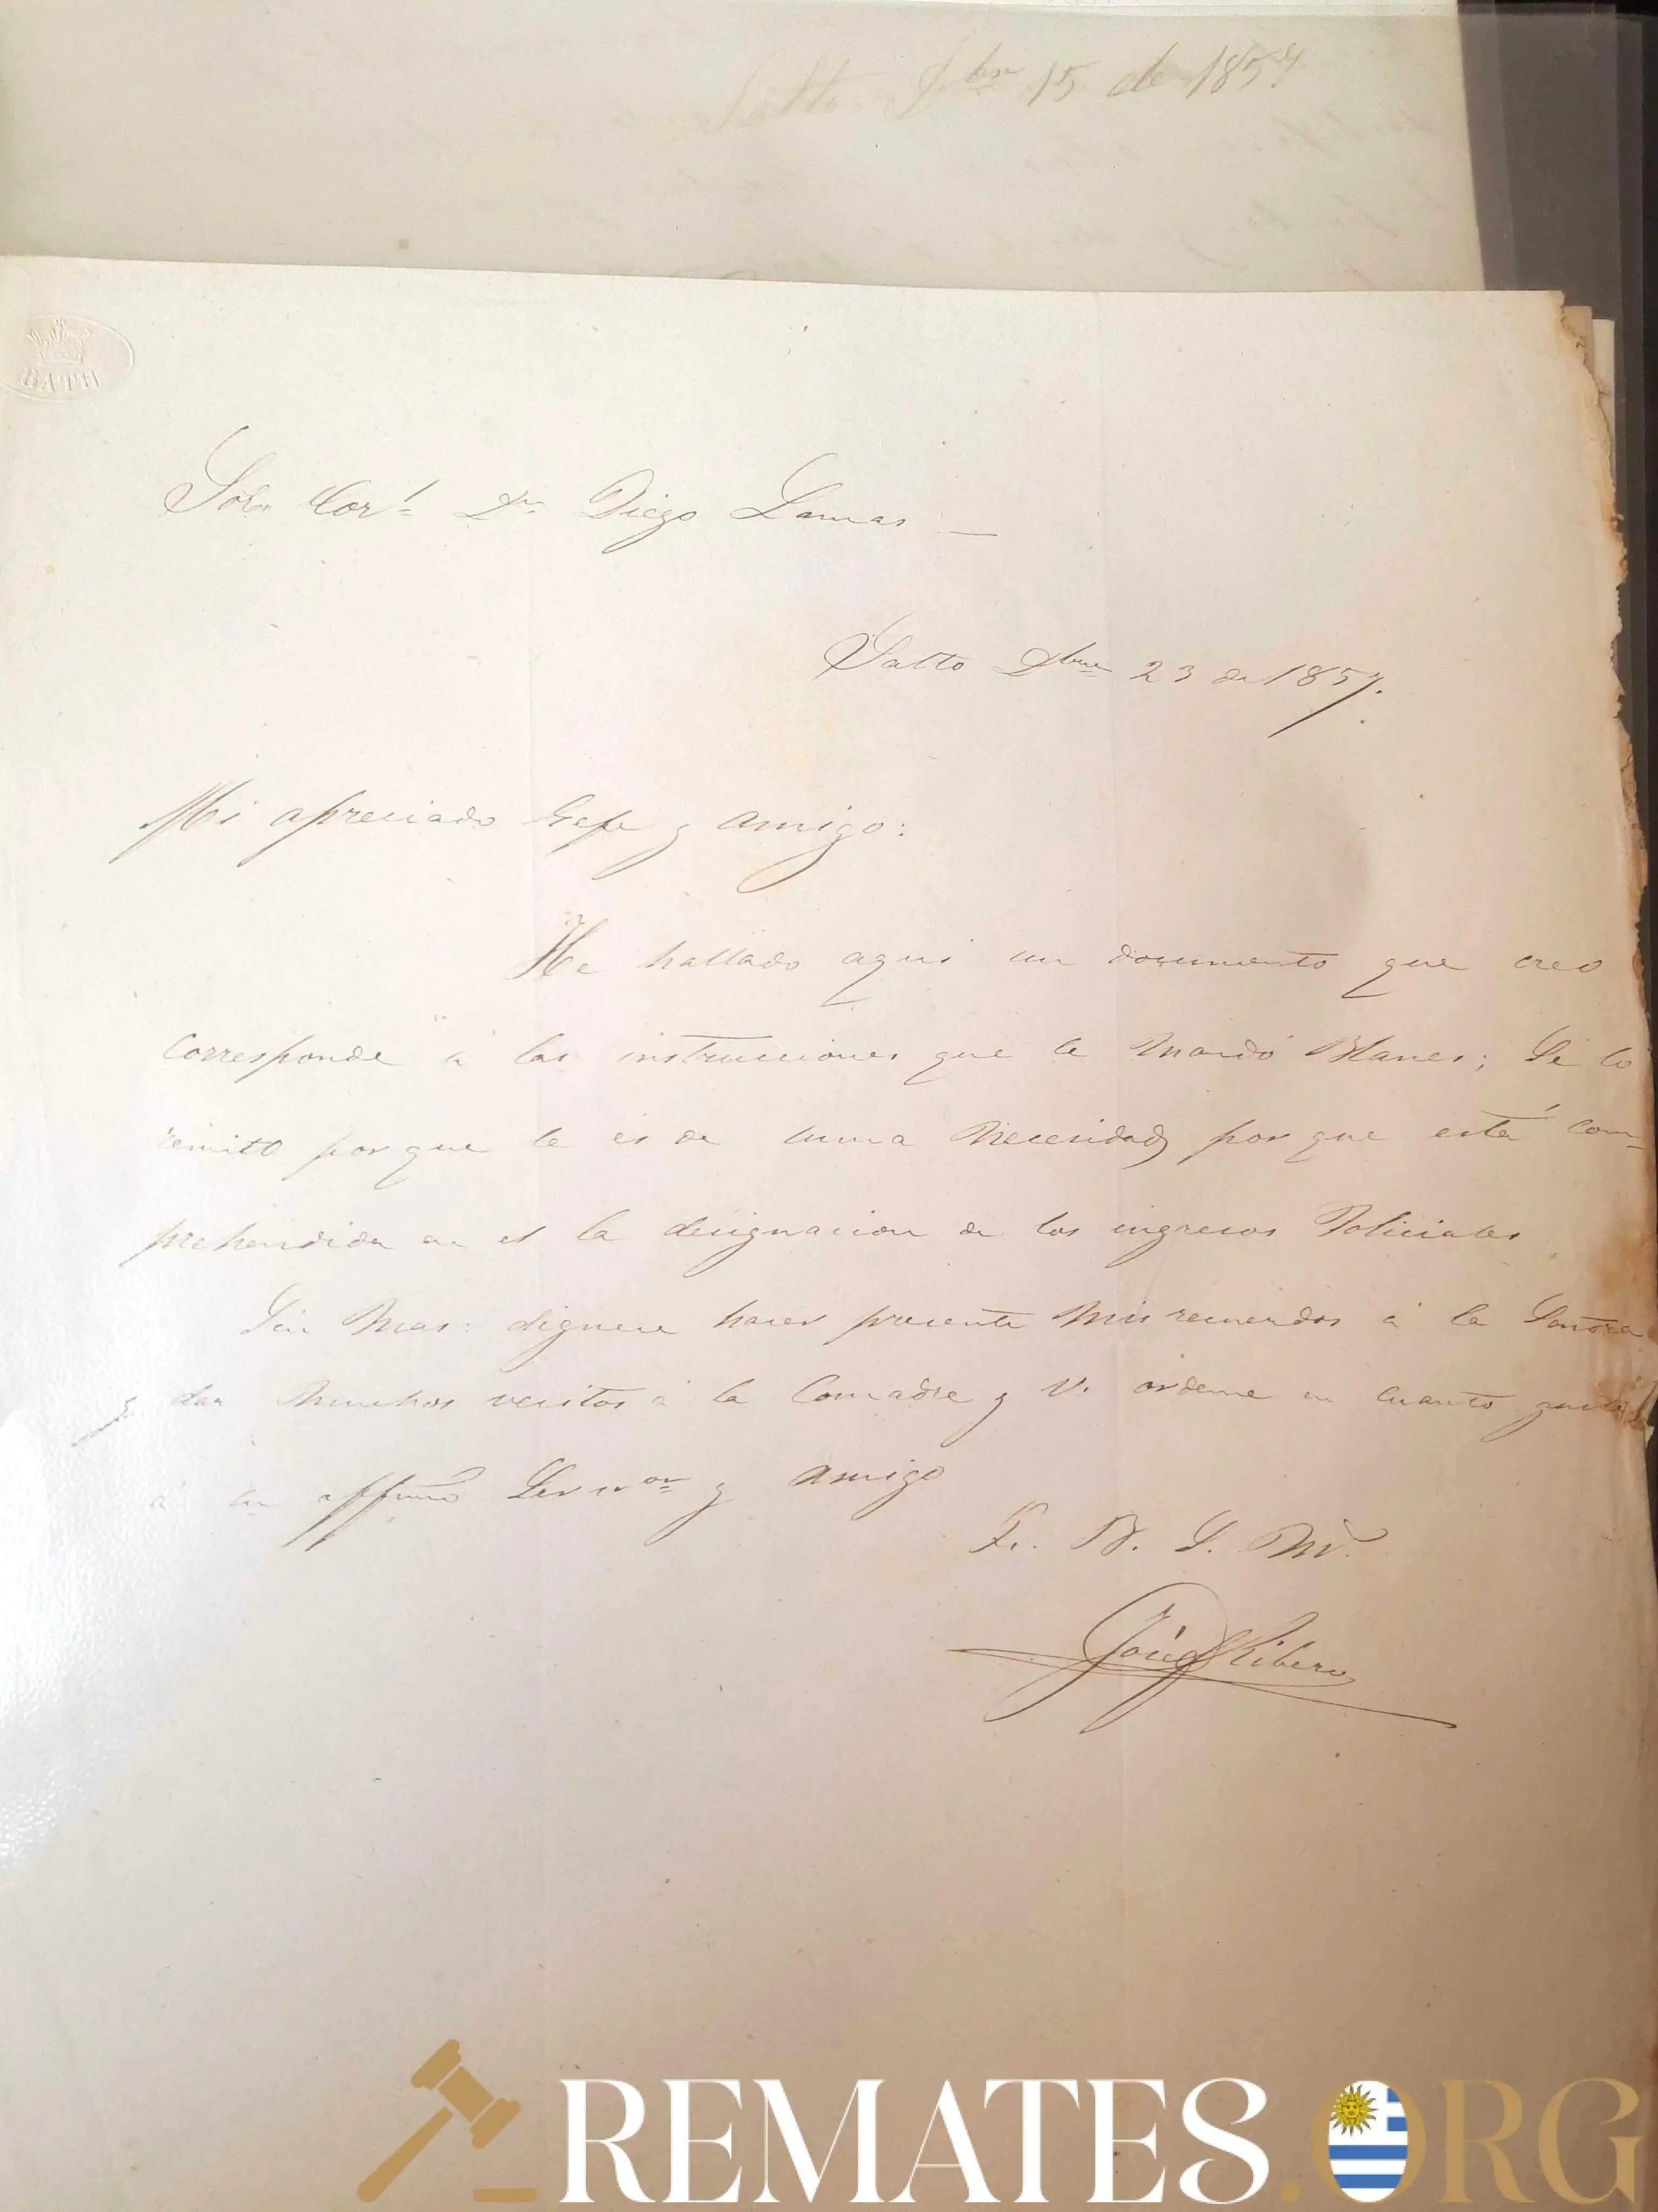 Salto Dbre 15 de 1857.
BATH
Sor. Corl. Dn. Diego Lamas —
Salto Dbre 23 de 1857.
Mi apreciado Gefe y amigo:
He hallado aqui un documento que creo
corresponde á las instrucciones que le mandó Blanes; Se lo
remito por que le es de suma necesidad por que está com-
prehendida en el la designacion de los ingresos Policiales
Sin mas: dignese hacer presente mis recuerdos á la Señora
y dar muchos vecitos á la Comadre y V. ordene en cuanto guste
á su affmo Servor y amigo
Q. B. S. M.
José Ribero
REMATES.ORG